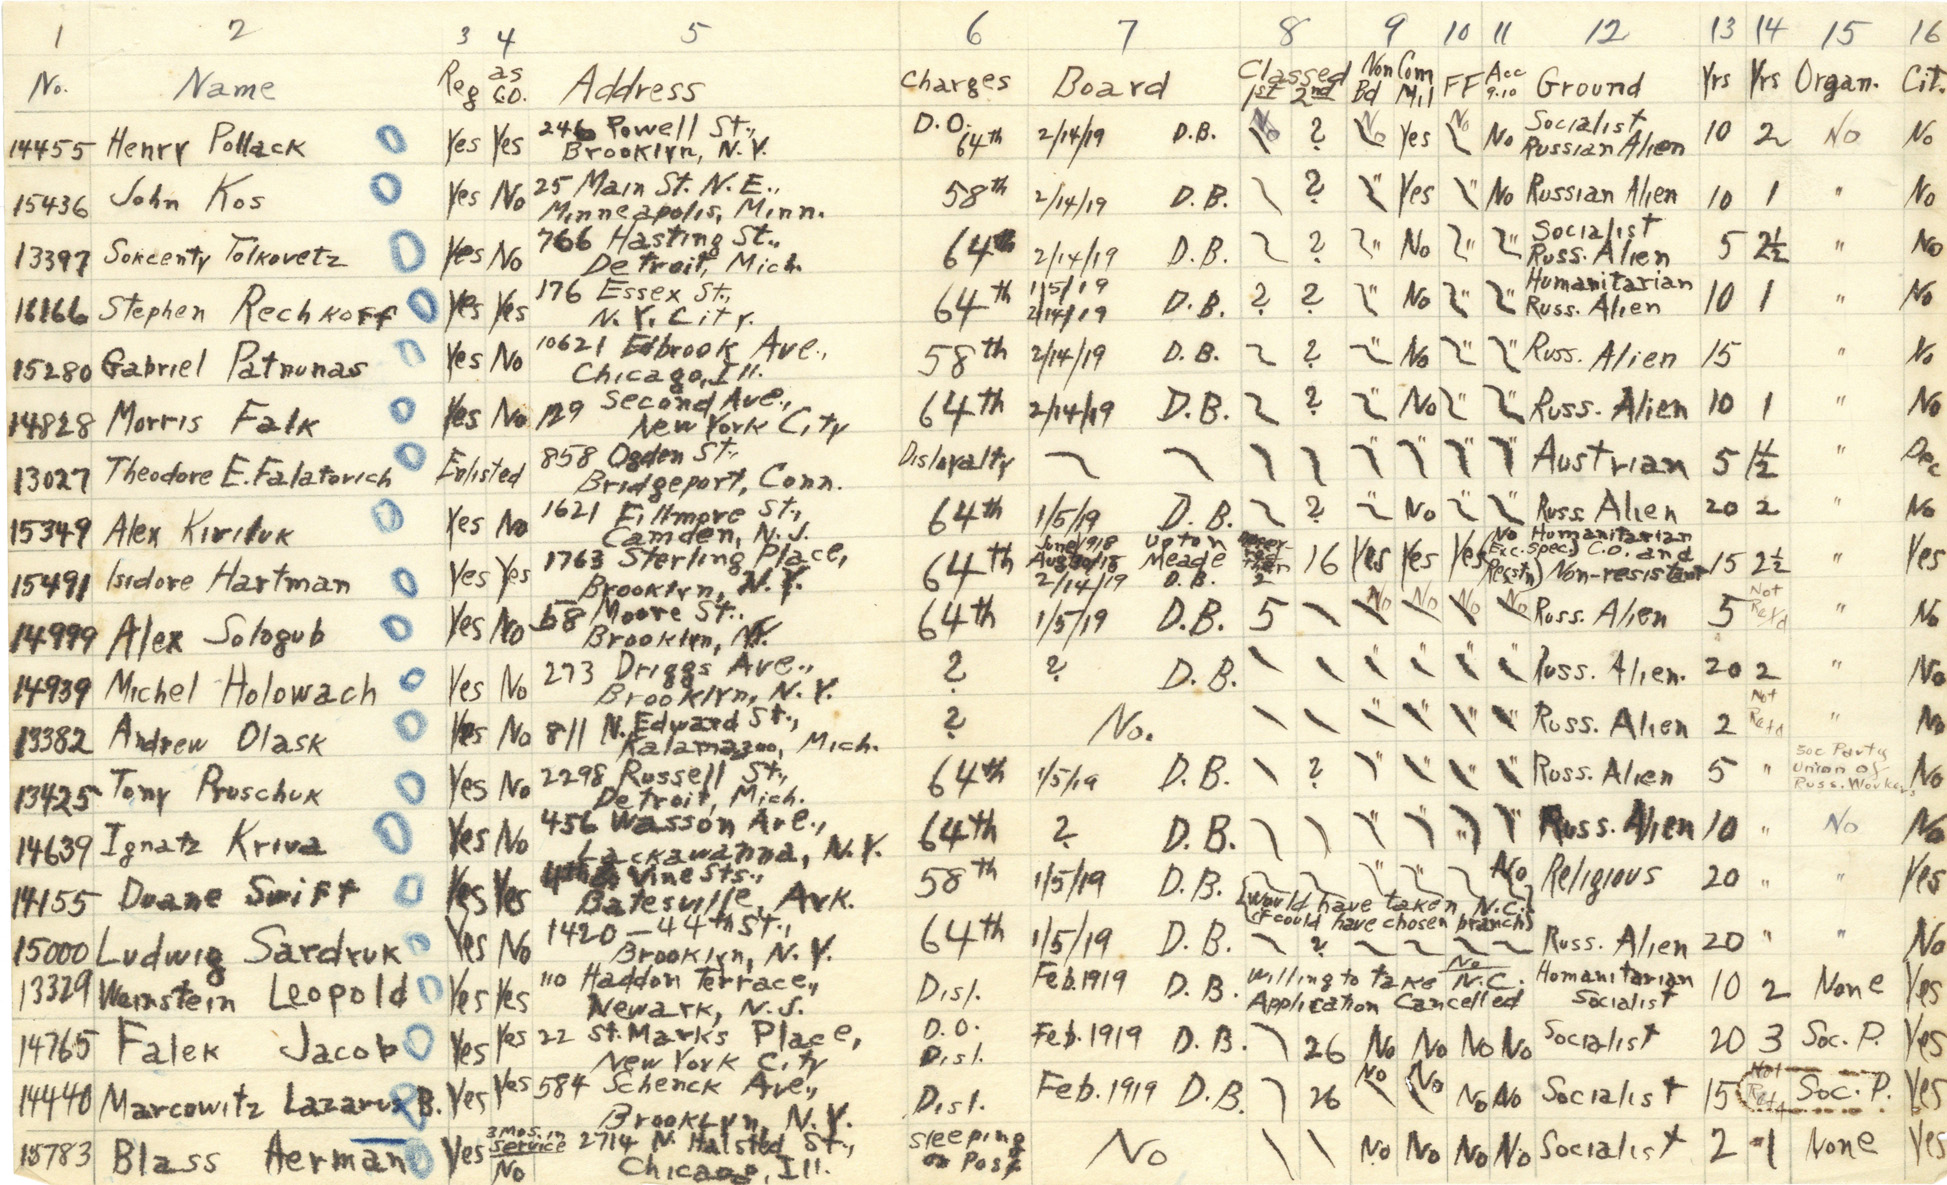 1 2 3 4 5 6 7 8 9 10 11 12 13 14 15 16
No. Name Reg as C.O. Address Charges Board Classed 1st 2nd Non Com Bd Mil FF Acc 9.10 Ground Yrs Yrs Organ. Cit.
14455 Henry Pollack Yes Yes 246 Powell St., Brooklyn, N.Y. D.O. 64th 2/14/19 D.B. No ? No Yes No No Socialist Russian Alien 10 2 No No
15436 John Kos Yes No 25 Main St. N.E., Minneapolis, Minn. 58th 2/14/19 D.B. ? " Yes " No Russian Alien 10 1 " No
13397 Sorcenty Tolkovetz Yes No 766 Hasting St., Detroit, Mich. 64th 2/14/19 D.B. ? " No " " Socialist Russ. Alien 5 2½ " No
16166 Stephen Rechkoff Yes Yes 176 Essex St., N.Y. City. 64th 1/5/19 2/14/19 D.B. ? ? " No " " Humanitarian Russ. Alien 10 1 " No
15280 Gabriel Patrunas Yes No 10621 Edbrook Ave., Chicago, Ill. 58th 2/14/19 D.B. ? " No " " Russ. Alien 15 " No
14828 Morris Falk Yes No 129 Second Ave., New York City 64th 2/14/19 D.B. ? " No " " Russ. Alien 10 1 " No
13027 Theodore E. Falatovich Enlisted 858 Ogden St., Bridgeport, Conn. Disloyalty " " " " Austrian 5 1½ " Dec
15349 Alex Kiriluk Yes No 1621 Fillmore St., Camden, N.J. 64th 1/5/19 D.B. ? " No " " Russ. Alien 20 2 " No
15491 Isidore Hartman Yes Yes 1763 Sterling Place, Brooklyn, N.Y. 64th June/1918 Aug 30/18 2/14/19 Upton Meade D.B. 2 16 Yes Yes Yes No Exc. spec. Regstn) Humanitarian C.O. and Non-resistant 15 2½ " Yes
14999 Alex Sologub Yes No 58 Moore St., Brooklyn, N.Y. 64th 1/5/19 D.B. 5 No No No No Russ. Alien 5 Not Retd " No
14939 Michel Holowach Yes No 273 Driggs Ave., Brooklyn, N.Y. ? ? D.B. " " " " Russ. Alien. 20 2 " No
13382 Andrew Olask Yes No 811 N. Edward St., Kalamazoo, Mich. ? No. " " " " Russ. Alien 2 Not Retd " No
13425 Tony Pruschuk Yes No 2298 Russell St., Detroit, Mich. 64th 1/5/19 D.B. ? " " " " Russ. Alien 5 " Soc Party Union of Russ. Workers No
14639 Ignatz Kriva Yes No 456 Wasson Ave., Lackawanna, N.Y. 64th ? D.B. " " " " Russ. Alien 10 " No No
14155 Duane Swift Yes Yes 4th & Vine Sts., Batesville, Ark. 58th 1/5/19 D.B. " " No (would have taken N.C. if could have chosen branch) Religious 20 " " Yes
15000 Ludwig Sardruk Yes No 1420 - 44th St., Brooklyn, N.Y. 64th 1/5/19 D.B. ? Russ. Alien 20 " " No
13329 Weinstein Leopold Yes Yes 110 Haddon Terrace, Newark, N.J. Disl. Feb. 1919 D.B. Willing to take N.C. No Application Cancelled Humanitarian Socialist 10 2 None Yes
14765 Falek Jacob Yes Yes 22 St. Marks Place, New York City D.O. Disl. Feb. 1919 D.B. 26 No No No No Socialist 20 3 Soc. P. Yes
14440 Marcowitz Lazarus B. Yes Yes 584 Schenck Ave., Brooklyn, N.Y. Disl. Feb. 1919 D.B. 26 No No No No Socialist 15 Not Retd Soc. P. Yes
15783 Blass Herman Yes 3 mos. in service No 2714 N. Halsted St., Chicago, Ill. Sleeping on Post No No No No No Socialist 2 1 None Yes